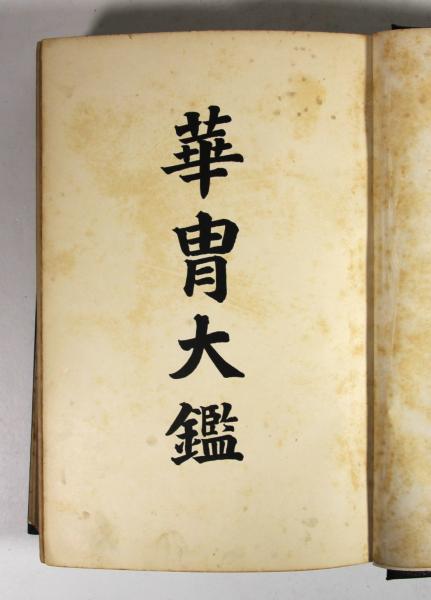 華冑大鑑